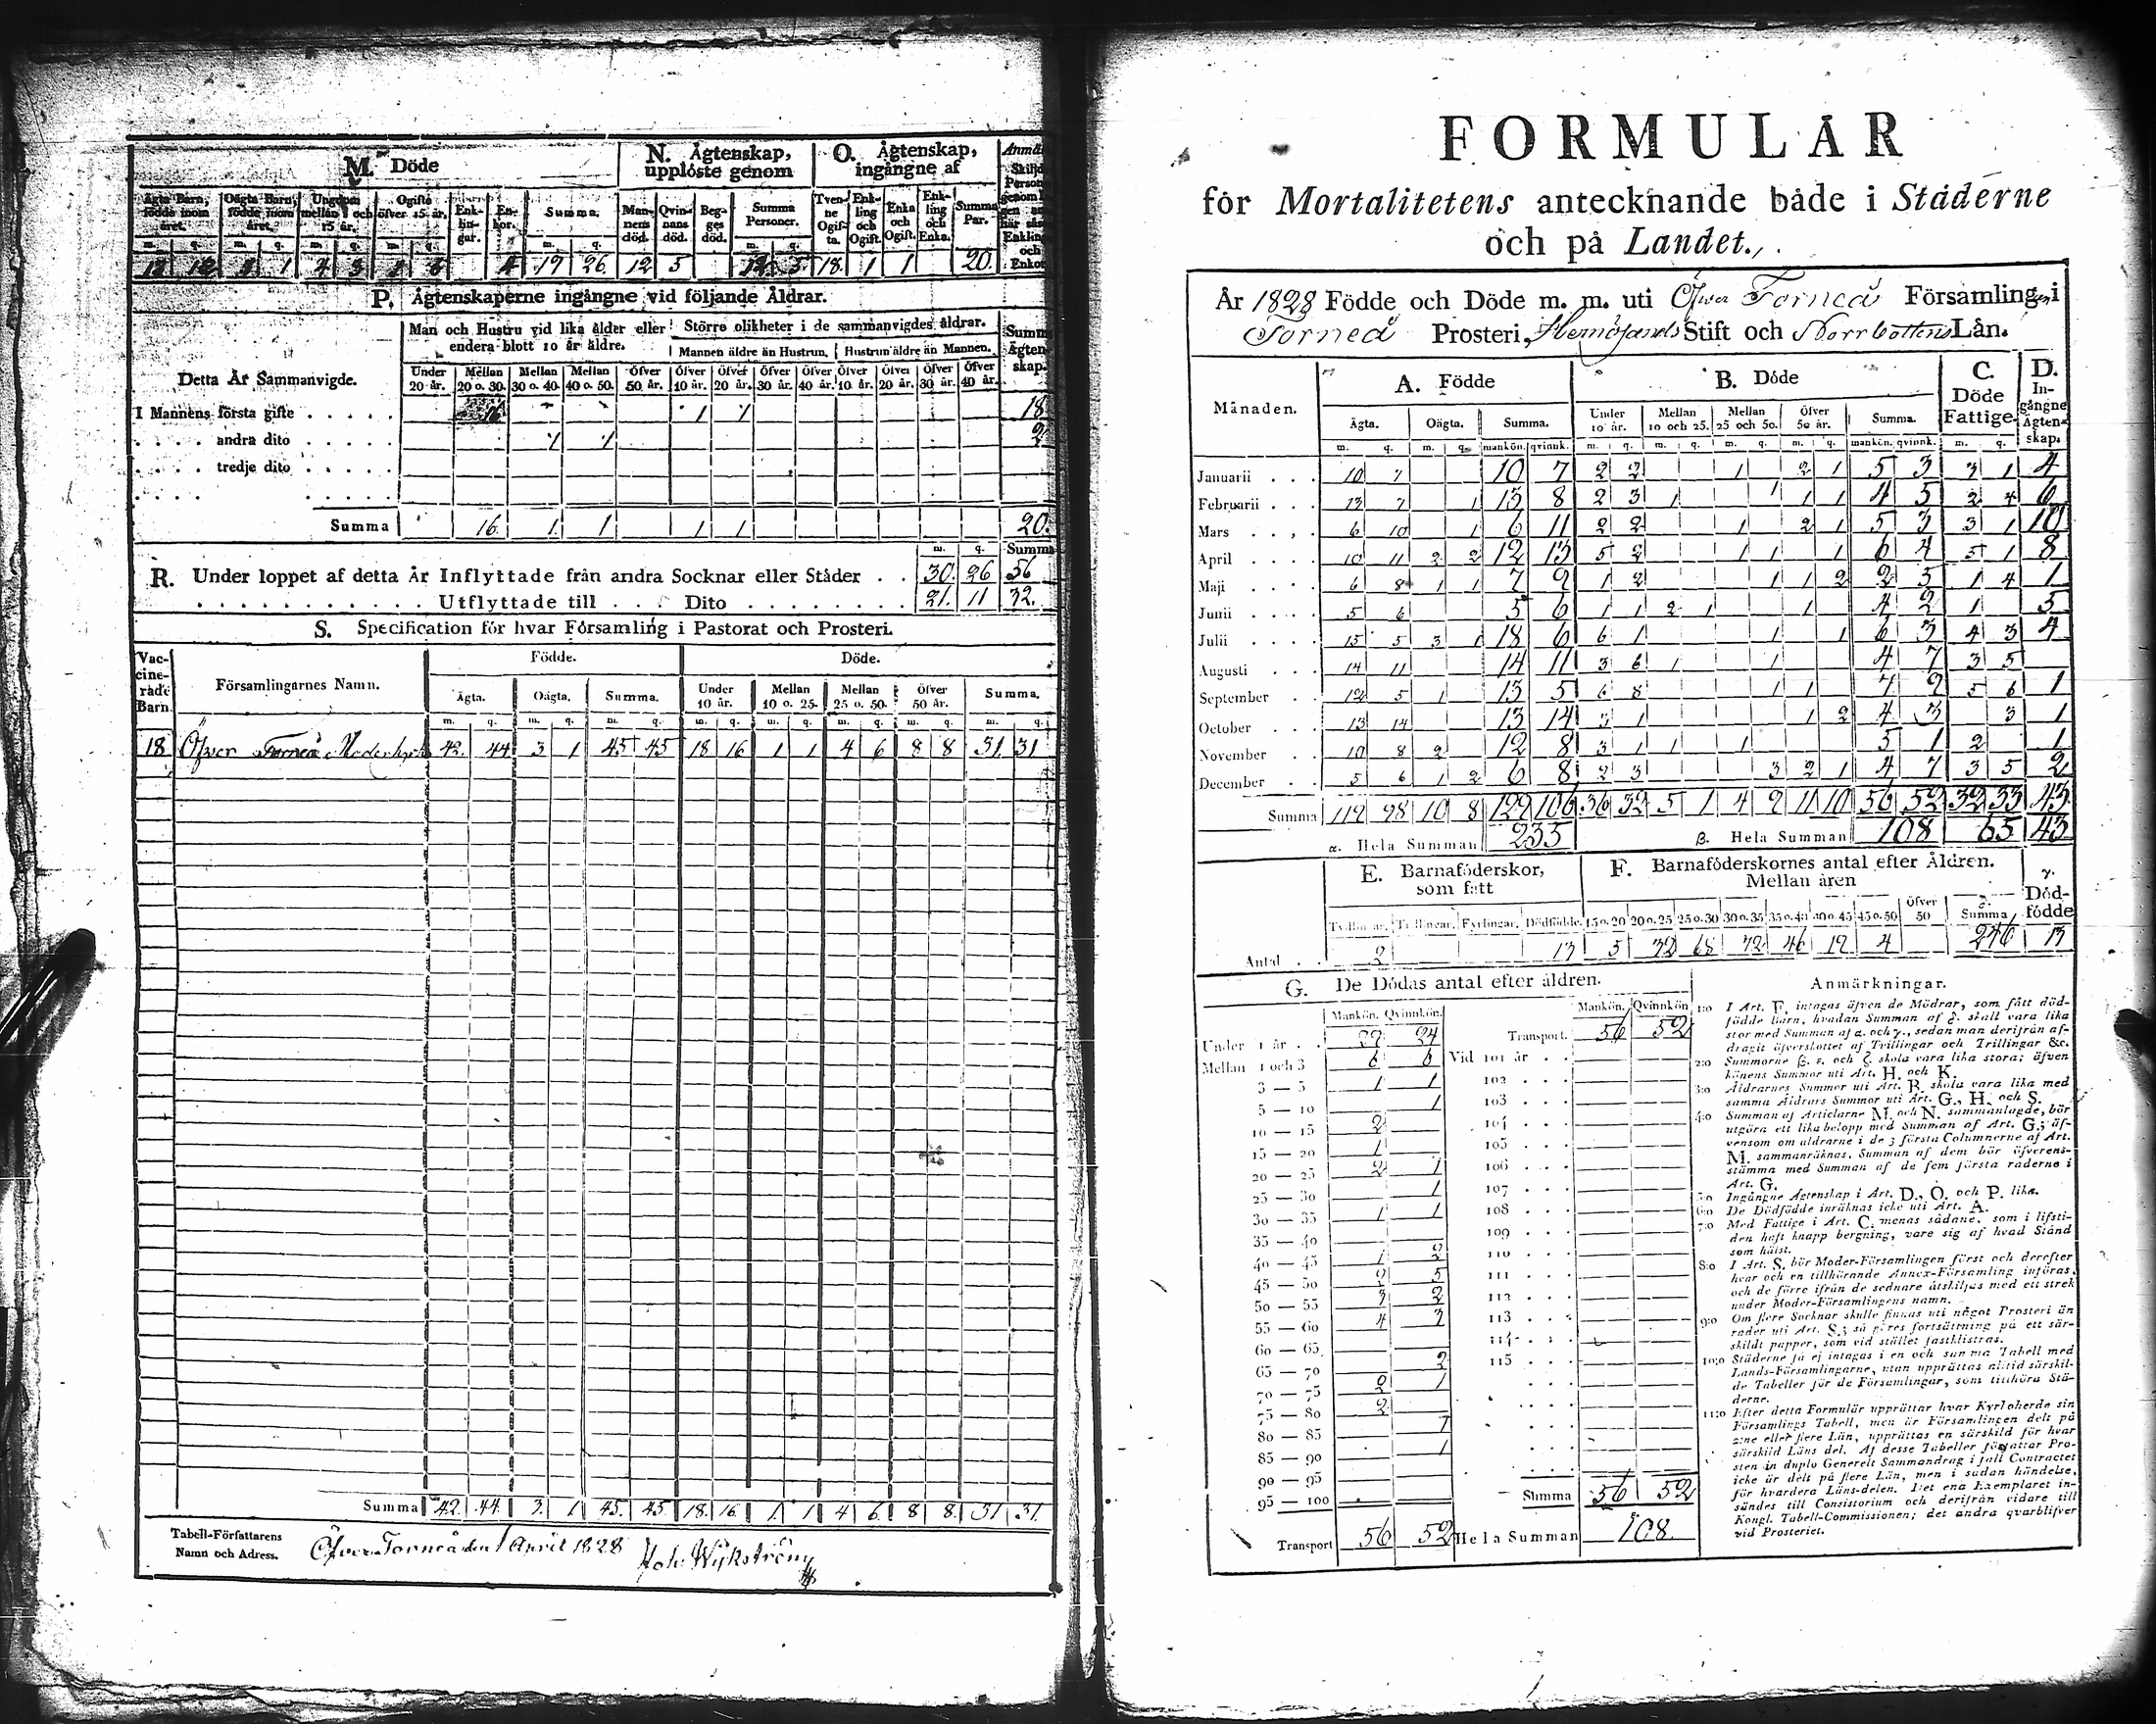 M. Döde
N. Ägtenskap, upplöste genom
O. Ägtenskap, ingångne af
Ägta Barn, födde inom året.
Oägta Barn, födde inom året.
Ungdom mellan 1 och 15 år.
Ogifte öfver 15 år.
Enklingar.
Enkor.
Summa.
Mannens död.
Qvinnans död.
Begges död.
Summa Personer.
Tvenne Ogifta.
Enkling och Ogift.
Enka och Ogift.
Enkling och Enka.
Summa Par.
19 26 12 5 18 1 1 20.
P. Ägtenskaperne ingångne vid följande Åldrar.
Detta År Sammanvigde.
Man och Hustru vid lika ålder eller endera blott 10 år äldre.
Större olikheter i de sammanvigdes åldrar.
Mannen äldre än Hustrun.
Hustrun äldre än Mannen.
Under 20 år. Mellan 20 o. 30. Mellan 30 o. 40. Mellan 40 o. 50. Öfver 50 år. Öfver 10 år. Öfver 20 år. Öfver 30 år. Öfver 40 år. Öfver 10 år. Öfver 20 år. Öfver 30 år. Öfver 40 år.
I Mannens första gifte 16 1 1 18
andra dito 1 1 2
tredje dito
Summa 16. 1. 1 1 1 20.
m. q. Summa
R. Under loppet af detta År Inflyttade från andra Socknar eller Städer 30. 26 56
Utflyttade till Dito 21. 11 32.
S. Specification för hvar Församling i Pastorat och Prosteri.
Vaccinerade Barn.
Församlingarnes Namn.
Födde.
Döde.
Ägta. Oägta. Summa. Under 10 år. Mellan 10 o. 25. Mellan 25 o. 50. Öfver 50 år. Summa.
m. q. m. q. m. q. m. q. m. q. m. q. m. q. m. q.
18 Öfver Torneå 42. 44 3 1 45 45 18 16 1 1 4 6 8 8 31 31
Summa 42. 44. 3. 1 45. 45. 18. 16. 1. 1 4 6. 8 8. 31 31.
Tabell-Författarens Namn och Adress.
Öfver Torneå den 1 April 1828 Joh. Wijkström
FORMULÄR
för Mortalitetens antecknande både i Städerne
och på Landet.
År 1828 Födde och Döde m. m. uti Öfver Torneå Församling i
Torneå Prosteri, Hernösands Stift och Norrbottens Län.
Månaden.
A. Födde
B. Döde
C. Döde Fattige.
D. Ingångne Ägtenskap.
Ägta. Oägta. Summa. Under 10 år. Mellan 10 och 25. Mellan 25 och 50. Öfver 50 år. Summa.
m. q. m. q. mankön. qvinnk. m. q. m. q. m. q. m. q. mankön. qvinnk. m. q.
Januarii 10 7 10 7 2 2 1 2 1 5 3 3 1 4
Februarii 13 7 1 13 8 2 3 1 1 1 1 4 5 2 4 6
Mars 6 10 1 6 11 2 2 1 2 1 5 3 3 1 10
April 10 11 2 2 12 13 5 2 1 1 1 6 4 5 1 8
Maji 6 8 1 1 7 9 1 2 1 1 2 2 5 1 4 1
Junii 5 6 5 6 1 1 2 1 1 4 2 1 5
Julii 15 5 3 1 18 6 6 1 1 1 6 3 4 3 4
Augusti 14 11 14 11 3 6 1 1 4 7 3 5
September 12 5 1 13 5 6 8 1 1 7 9 5 6 1
October 13 14 13 14 1 1 2 4 3 3 1
November 10 8 2 12 8 3 1 1 1 5 1 2 1
December 5 6 1 2 6 8 2 3 3 2 1 4 7 3 5 2
Summa 119 98 10 8 129 106 36 32 5 1 4 9 11 10 56 52 32 33 43
α. Hela Summan 235
β. Hela Summan 108 65 43
E. Barnaföderskor, som fått
F. Barnaföderskornes antal efter Åldren.
Mellan åren
γ. Dödfödde
Tvillingar. Trillingar. Fyrlingar. Dödfödde. 15 o. 20 20 o. 25 25 o. 30 30 o. 35 35 o. 40 40 o. 45 45 o. 50 Öfver 50 Summa
Antal 2 13 5 32 68 72 46 19 4 246 13
G. De Dödas antal efter åldren.
Mankön. Qvinnkön.
Under 1 år 24
Mellan 1 och 3 6 6
3 — 5 1 1
5 — 10 1
10 — 15 2
15 — 20 1
20 — 25 2 1
25 — 30 1
30 — 35 1 1
35 — 40
40 — 45 1 2
45 — 50 2 5
50 — 55 3 2
55 — 60 4 3
60 — 65
65 — 70 2
70 — 75 2 1
75 — 80 2
80 — 85 1
85 — 90 1
90 — 95
95 — 100
Transport 56 52
Mankön. Qvinnkön
Transport. 56 52
Vid 101 år
102
103
104
105
106
107
108
109
110
111
112
113
114
115
Summa 56 52
Hela Summan 108.
Anmärkningar.
1:o I Art. F. intagas äfven de Mödrar, som fått död-
födde barn, hvadan Summan af δ. skall vara lika
stor med Summan af α. och γ., sedan man derifrån af-
dragit öfverskottet af Tvillingar och Trillingar &c.
2:o Summorne β. ε. och ζ. skola vara lika stora; äfven
könens Summor uti Art. H. och K.
3:o Åldrarnes Summor uti Art. B. skola vara lika med
samma Åldrars Summor uti Art. G., H. och S.
4:o Summan af Articlarne M. och N. sammanlagde, bör
utgöra ett lika belopp med Summan af Art. G.; äf-
vensom om åldrarne i de 3 första Columnerne af Art.
M. sammanräknas, Summan af dem bör öfverens-
stämma med Summan af de fem första raderne i
Art. G.
5:o Ingångne Ägtenskap i Art. D., O. och P. lika.
6:o De Dödfödde inräknas icke uti Art. A.
7:o Med Fattige i Art. C. menas sådane, som i lifsti-
den haft knapp bergning, vare sig af hvad Stånd
som hälst.
8:o I Art. S. bör Moder-Församlingen först och derefter
hvar och en tillhörande Annex-Församling införas,
och de förre ifrån de sednare åtskiljas med ett streck
under Moder-Församlingens namn.
9:o Om flere Socknar skulle finnas uti något Prosteri än
rader uti Art. S.; så göres fortsättning på ett sär-
skildt papper, som vid stället fastklistras.
10:o Städerne få ej intagas i en och samma Tabell med
Lands-Församlingarne, utan upprättas alltid särskil-
de Tabeller för de Församlingar, som tillhöra Stä-
derne.
11:o Efter detta Formulär upprättar hvar Kyrkoherde sin
Församlings Tabell, men är Församlingen delt på
2:ne eller flere Län, upprättas en särskild för hvar
särskild Läns del. Af desse Tabeller författar Pro-
sten in duplo Generelt Sammandrag i fall Contractet
icke är delt på flere Län, men i sådan händelse,
för hvardera Läns-delen. Det ena Exemplaret in-
sändes till Consistorium och derifrån vidare till
Kongl. Tabell-Commissionen; det andra qvarblifver
vid Prosteriet.